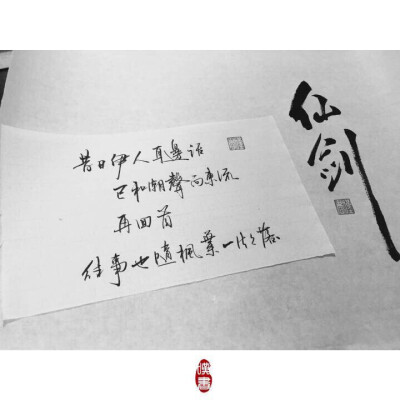 仙剑
昔日伊人耳邊话
已和潮聲向東流
再回首
往事也隨楓葉一片片落